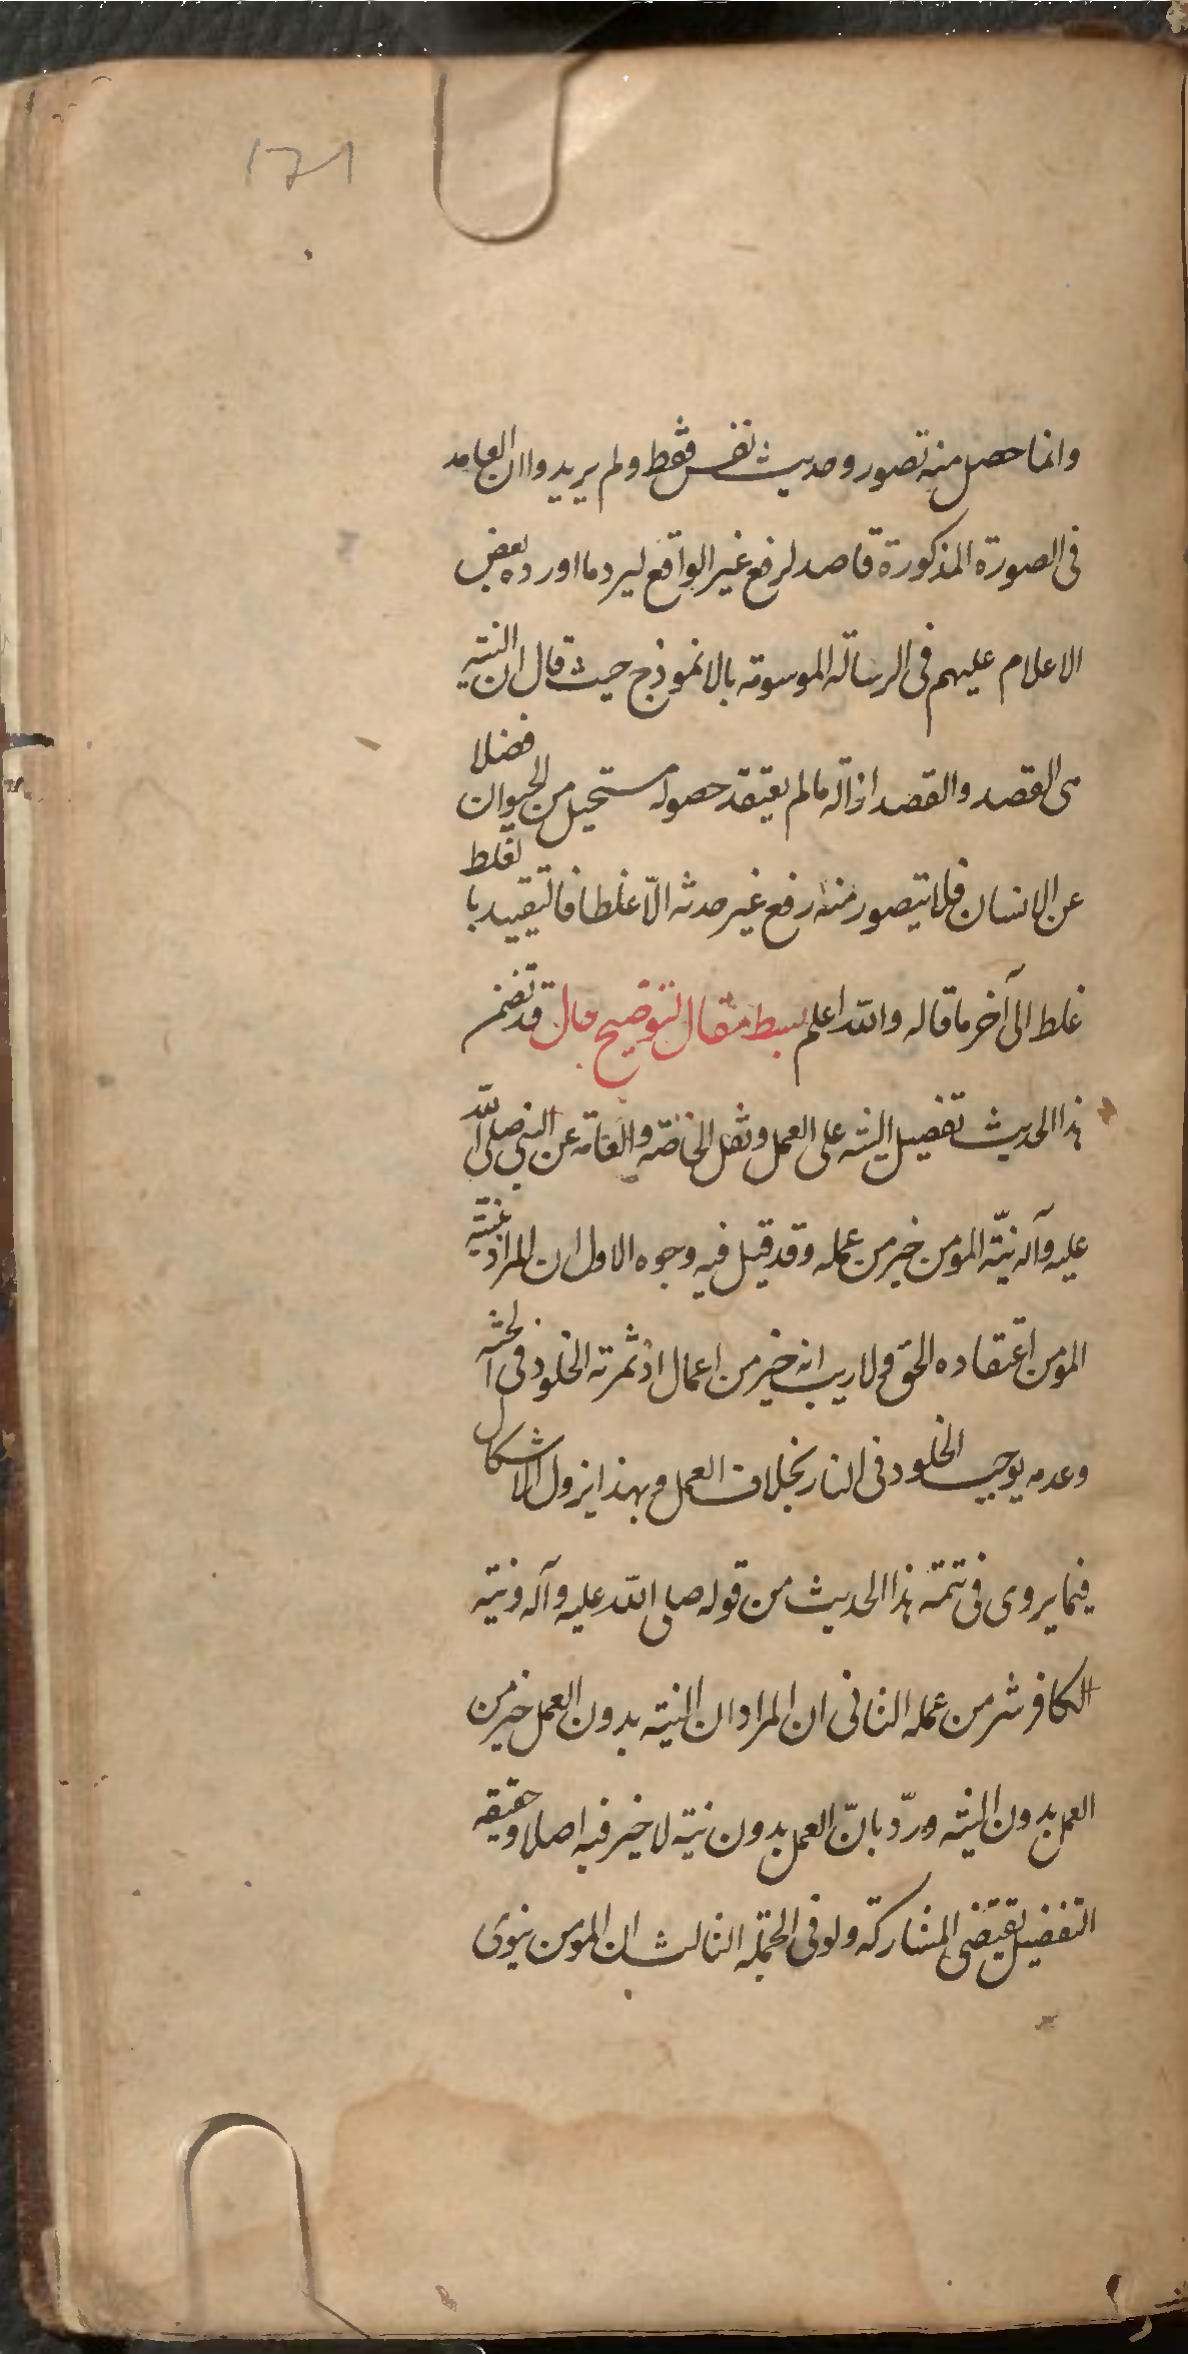 ١٦١
وانما حصل منه تصور وحديث نفس فقط ولم يريدوا ان العامد
فى الصورة المذكورة قاصد لرفع غير الواقع ليرد ما اورده بعض
الاعلام عليهم فى الرسالة الموسومة بالانموذج حيث قال ان النية
هى القصد والقصد ازالة ما لم يعتقد حصوله مستحيل من الحيوان فضلا
عن الانسان فلا يتصور منه رفع غير حدثه الّا غلطا فالتقييد بالغلط
غلط الى آخر ما قاله والله اعلم بسط مقال لتوضيح حال قد تضمن
هذا الحديث تفضيل النية على العمل ونقل الخاصّة والعامة عن النبى صلى الله
عليه وآله نيّة المومن خير من عمله وقد قيل فيه وجوه الاول ان المراد بنية
المومن اعتقاده الحق ولا ريب انه خير من اعمال اذ ثمرته الخلود فى الجنة
وعدمه يوجب الخلود فى النار بخلاف العمل وبهذا يزول الاشكال
فيما يروى فى تتمة هذا الحديث من قوله صلى الله عليه وآله ونية
الكافر شر من عمله الثانى ان المراد ان النية بدون العمل خير من
العمل بدون النية وردّ بانّ العمل بدون نية لا خير فيه اصلا وحقيقة
التفضيل يقتضى المشاركة ولو فى الجملة الثالث ان المومن ينوى